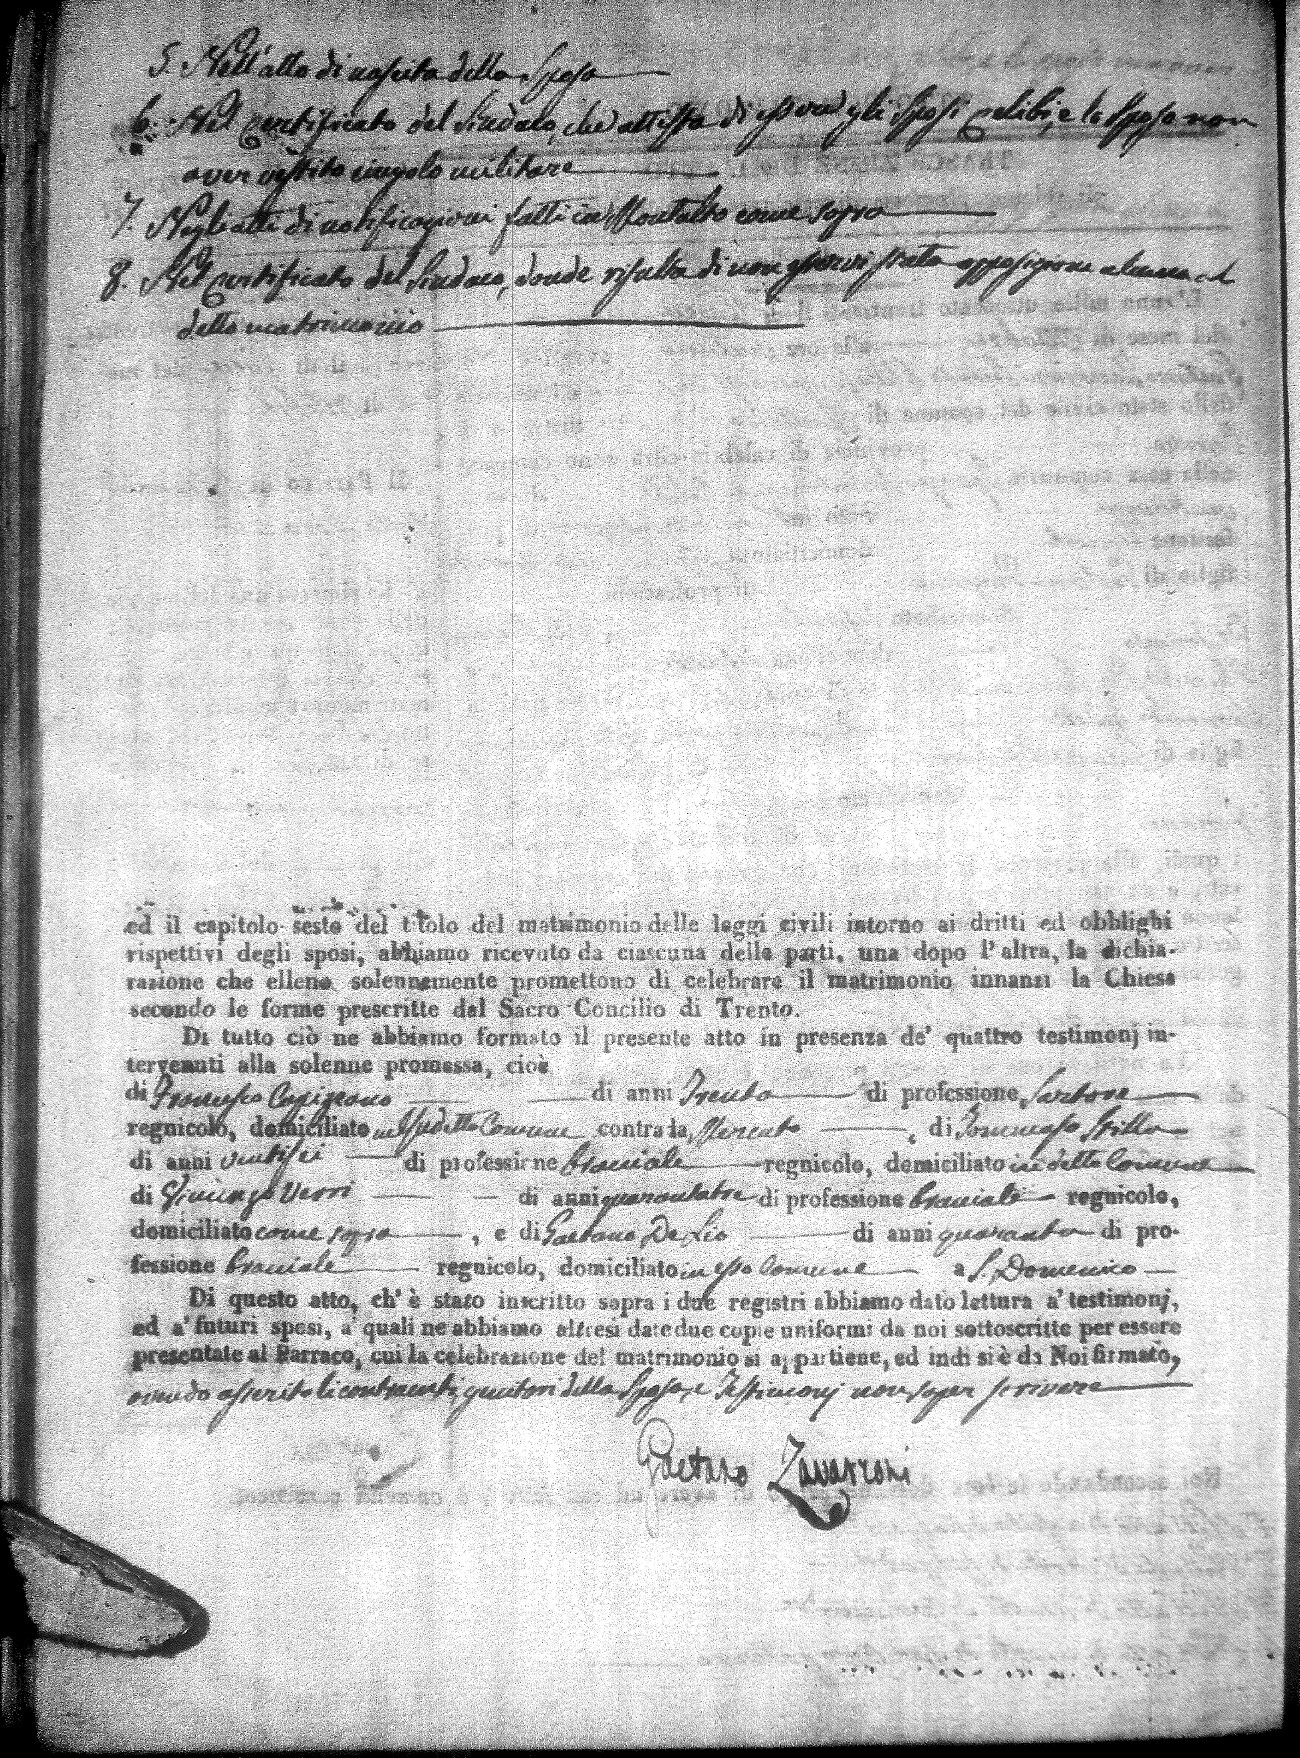 5. Nell'atto di nascita dello Sposo
6. Nel Certificato del Sindaco, che attesta di essere gli Sposi celibi, e lo Sposo non
aver vestito cingolo militare
7. Negli atti di notificazioni fatti in come sopra
8. Nel Certificato del Sindaco, donde risulta di non esservi stata opposizione alcuna al
detto matrimonio
ed il capitolo sesto del titolo del matrimonio delle leggi civili intorno ai dritti ed obblighi
rispettivi degli sposi, abbiamo ricevuto da ciascuna delle parti, una dopo l'altra, la dichia-
razione che elleno solennemente promettono di celebrare il matrimonio innanzi la Chiesa
secondo le forme prescritte dal Sacro Concilio di Trento.
Di tutto ciò ne abbiamo formato il presente atto in presenza de' quattro testimonj in-
tervenuti alla solenne promessa, cioè
di Francesco di anni Trenta di professione Sartore
regnicolo, domiciliato in Comune contrada Mercato, di Tommaso Stillo
di anni ventisei di professione bracciale regnicolo, domiciliato in detto Comune
di Verri di anni quarantatre di professione bracciale regnicolo,
domiciliato come sopra, e di Gaetano De Lio di anni quaranta di pro-
fessione bracciale regnicolo, domiciliato in esso Comune a S. Domenico
Di questo atto, ch'è stato inscritto sopra i due registri abbiamo dato lettura a' testimonj,
ed a' futuri sposi, a' quali ne abbiamo altresì date due copie uniformi da noi sottoscritte per essere
presentate al Parraco, cui la celebrazione del matrimonio si appartiene, ed indi si è da Noi firmato,
avendo asserito li contraenti, genitori della Sposa, e Testimonj non saper scrivere
Gaetano Zavarroni